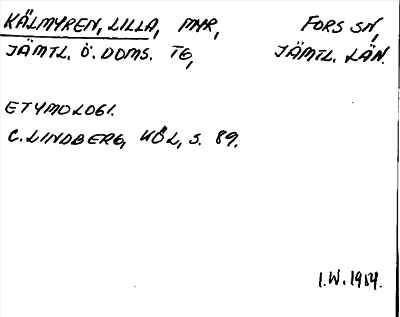 KÄLMYREN, LILLA, MYR, FORS SN,
JÄMTL. Ö. DOMS. TG, JÄMTL. LÄN.
ETYMOLOGI.
C. LINDBERG, KÖL, S. 89.
I.W. 1984.